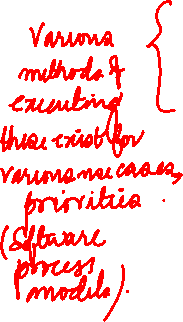 Various
methods of
executing
these exist for
various use cases,
priorities.
(Software
process
models).